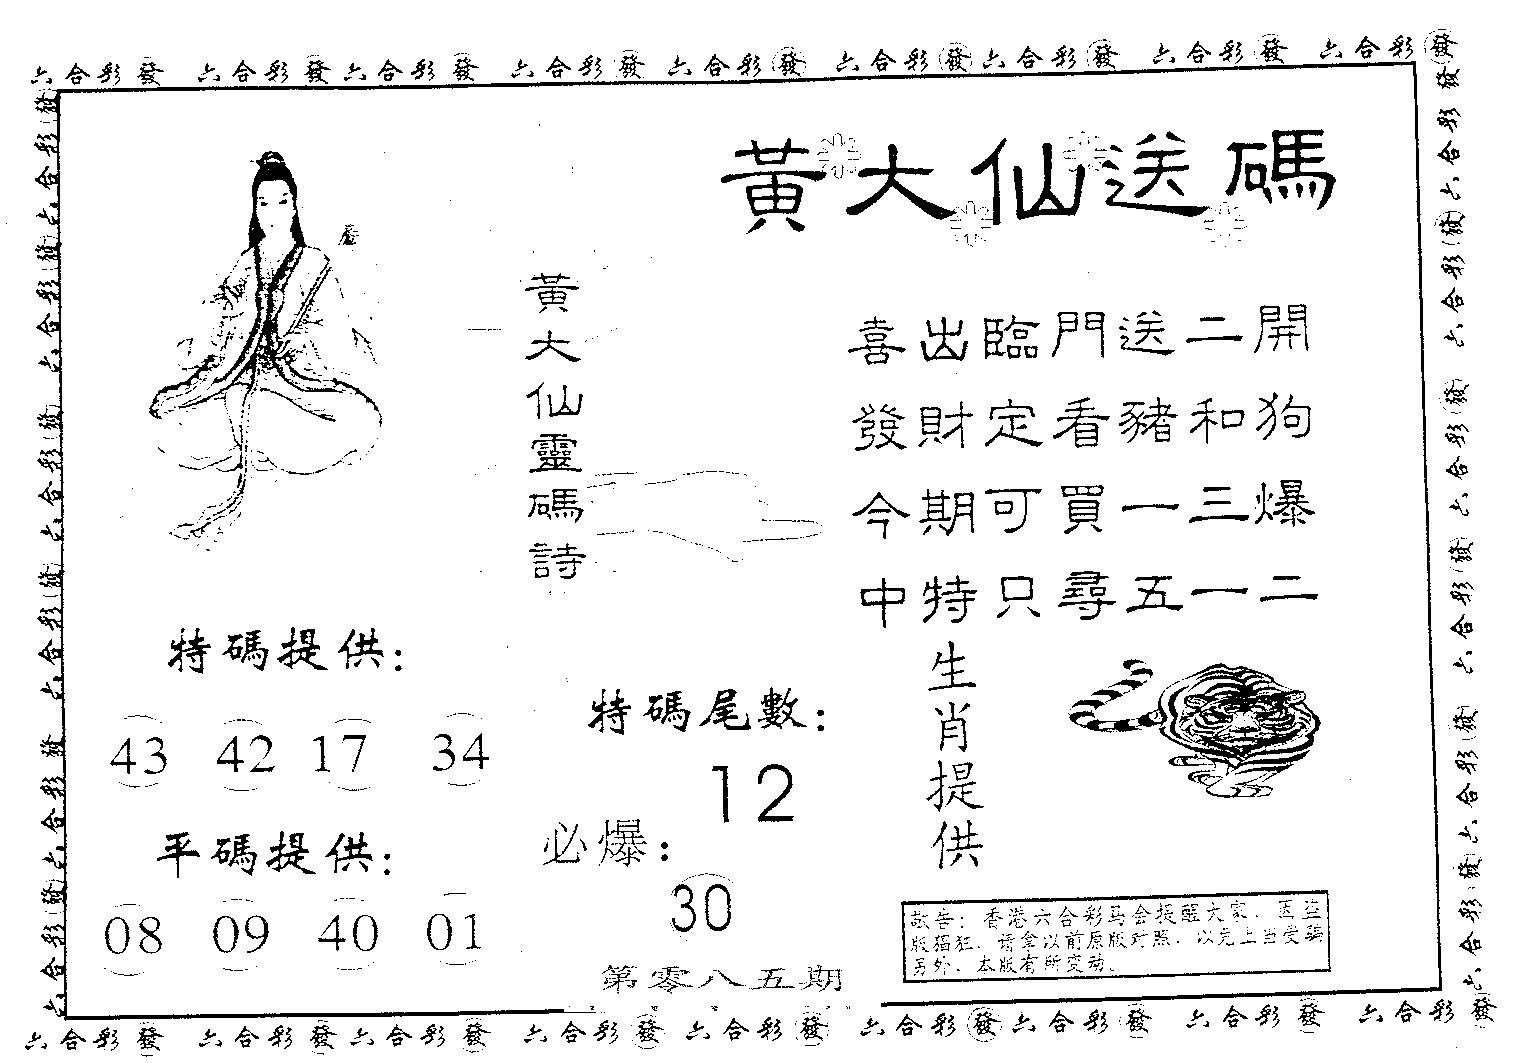 六合彩發 六合彩發 六合彩發 六合彩發 六合彩發 六合彩發 六合彩發 六合彩發 六合彩發
黃大仙送碼
黃大仙靈碼詩
喜出臨門送二開
發財定看豬和狗
今期可買一三爆
中特只尋五一二
特碼提供:
43 42 17 34
平碼提供:
08 09 40 01
特碼尾數:
12
必爆:
30
第零八五期
生肖提供
敬告:香港六合彩马会提醒大家,因盗
版猖狂,请拿以前原版对照,以免上当受骗
另外,本版有所变动。
六合彩發 六合彩發 六合彩發 六合彩發 六合彩發 六合彩發 六合彩發 六合彩發 六合彩發